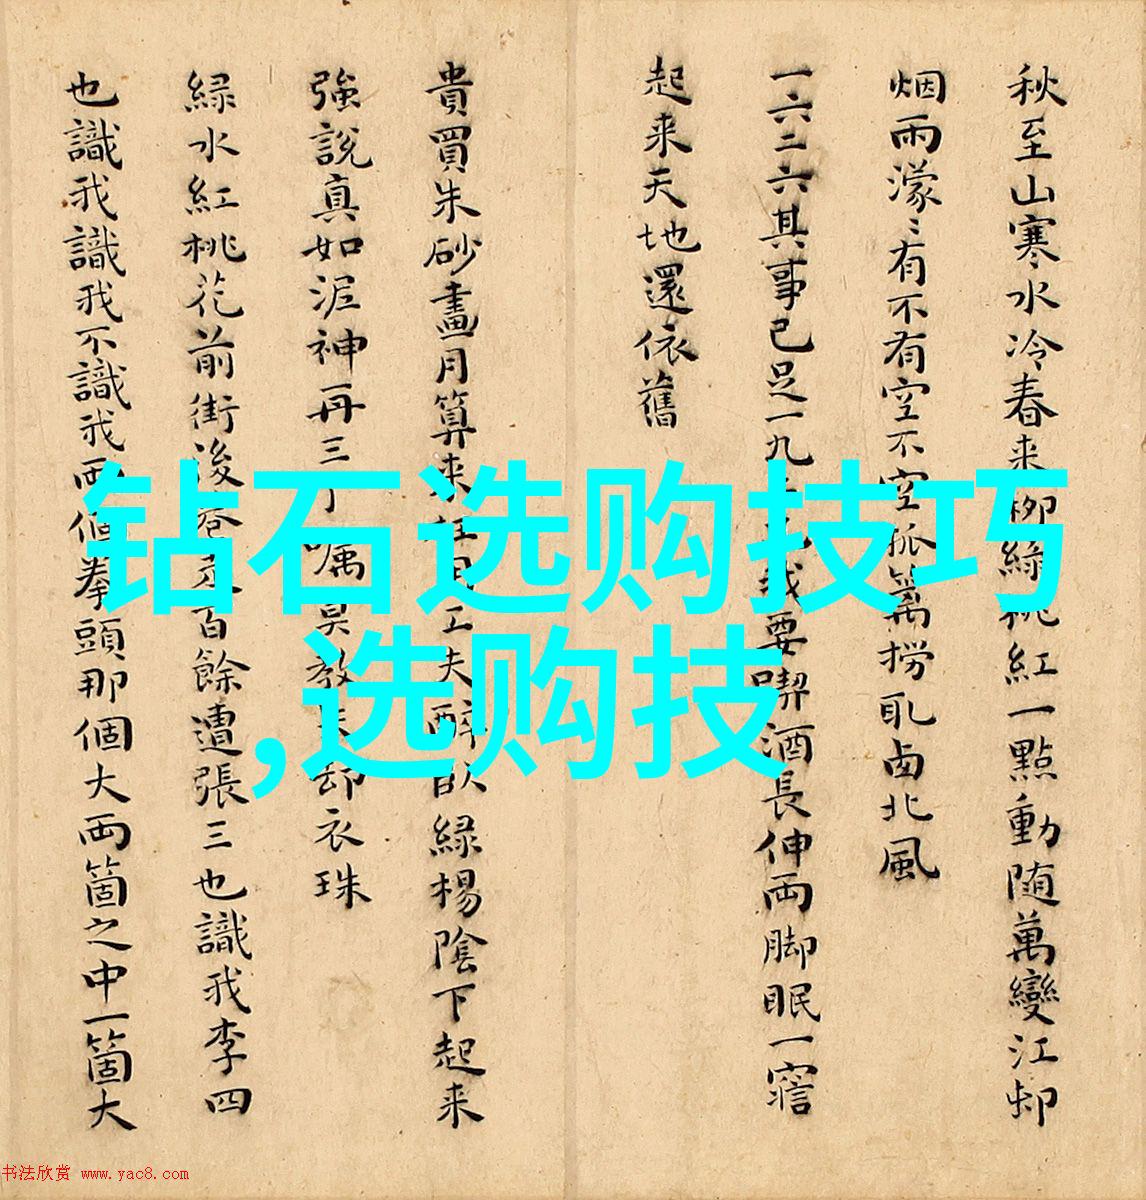 秋至山寒水冷春来柳綠桃紅一點動随萬變江邨
烟雨濛〻有不有空不空孤篱撈取西北風
一六二六其事已足一九 我要喫酒長伸両脚眠一寤
起来天地還依舊
貴買朱砂畫月算来 工夫醉臥緑楊陰下起来
強說真如泥神再三丁嘱莫教 却衣珠
緑水紅桃花前街後巷 百餘遭張三也識我李四
也識我識我不識我両個拳頭那個大両箇之中一箇大
钻石选购技巧
,选购技
书法欣赏 www.yac8.com